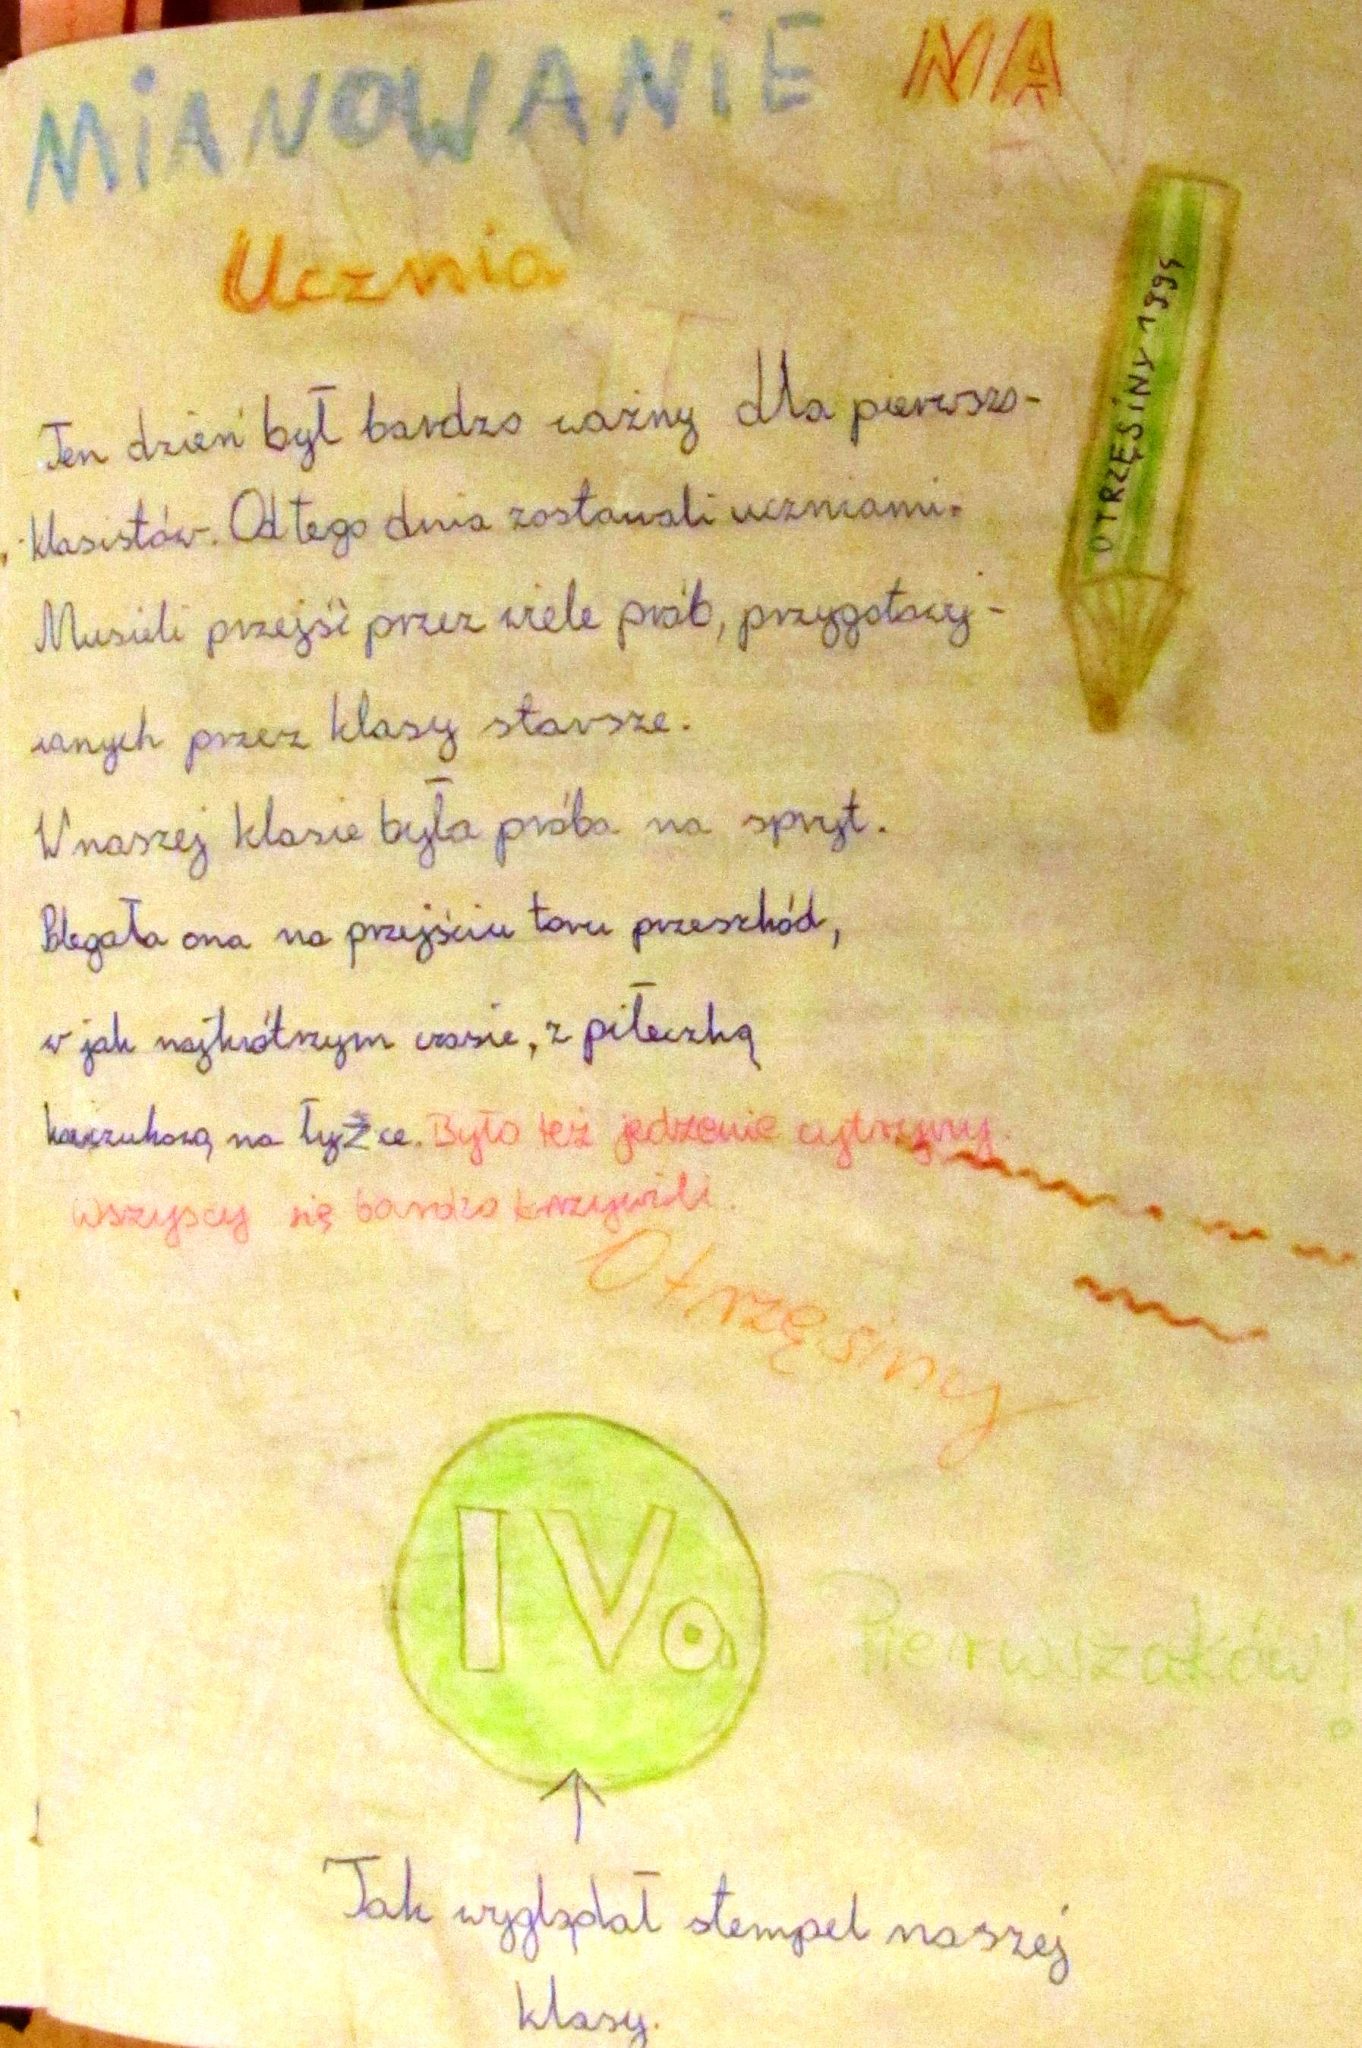 MiANOWANiE NA
Ucznia
OTRZĘSiNY 1995
Ten dzień był bardzo ważny dla pierwszo-
klasistów. Od tego dnia zostawali uczniami.
Musieli przejść przez wiele prób, przygotowy-
wanych przez klasy starsze.
W naszej klasie była próba na spryt.
Polegała ona na przejściu toru przeszkód,
w jak najkrótszym czasie, z piłeczką
na łyżce. Było też jedzenie cytryny.
Wszyscy się bardzo krzywili.
Otrzęsiny
IVa
Pierwszaków!
Tak wyglądał stempel naszej
klasy.